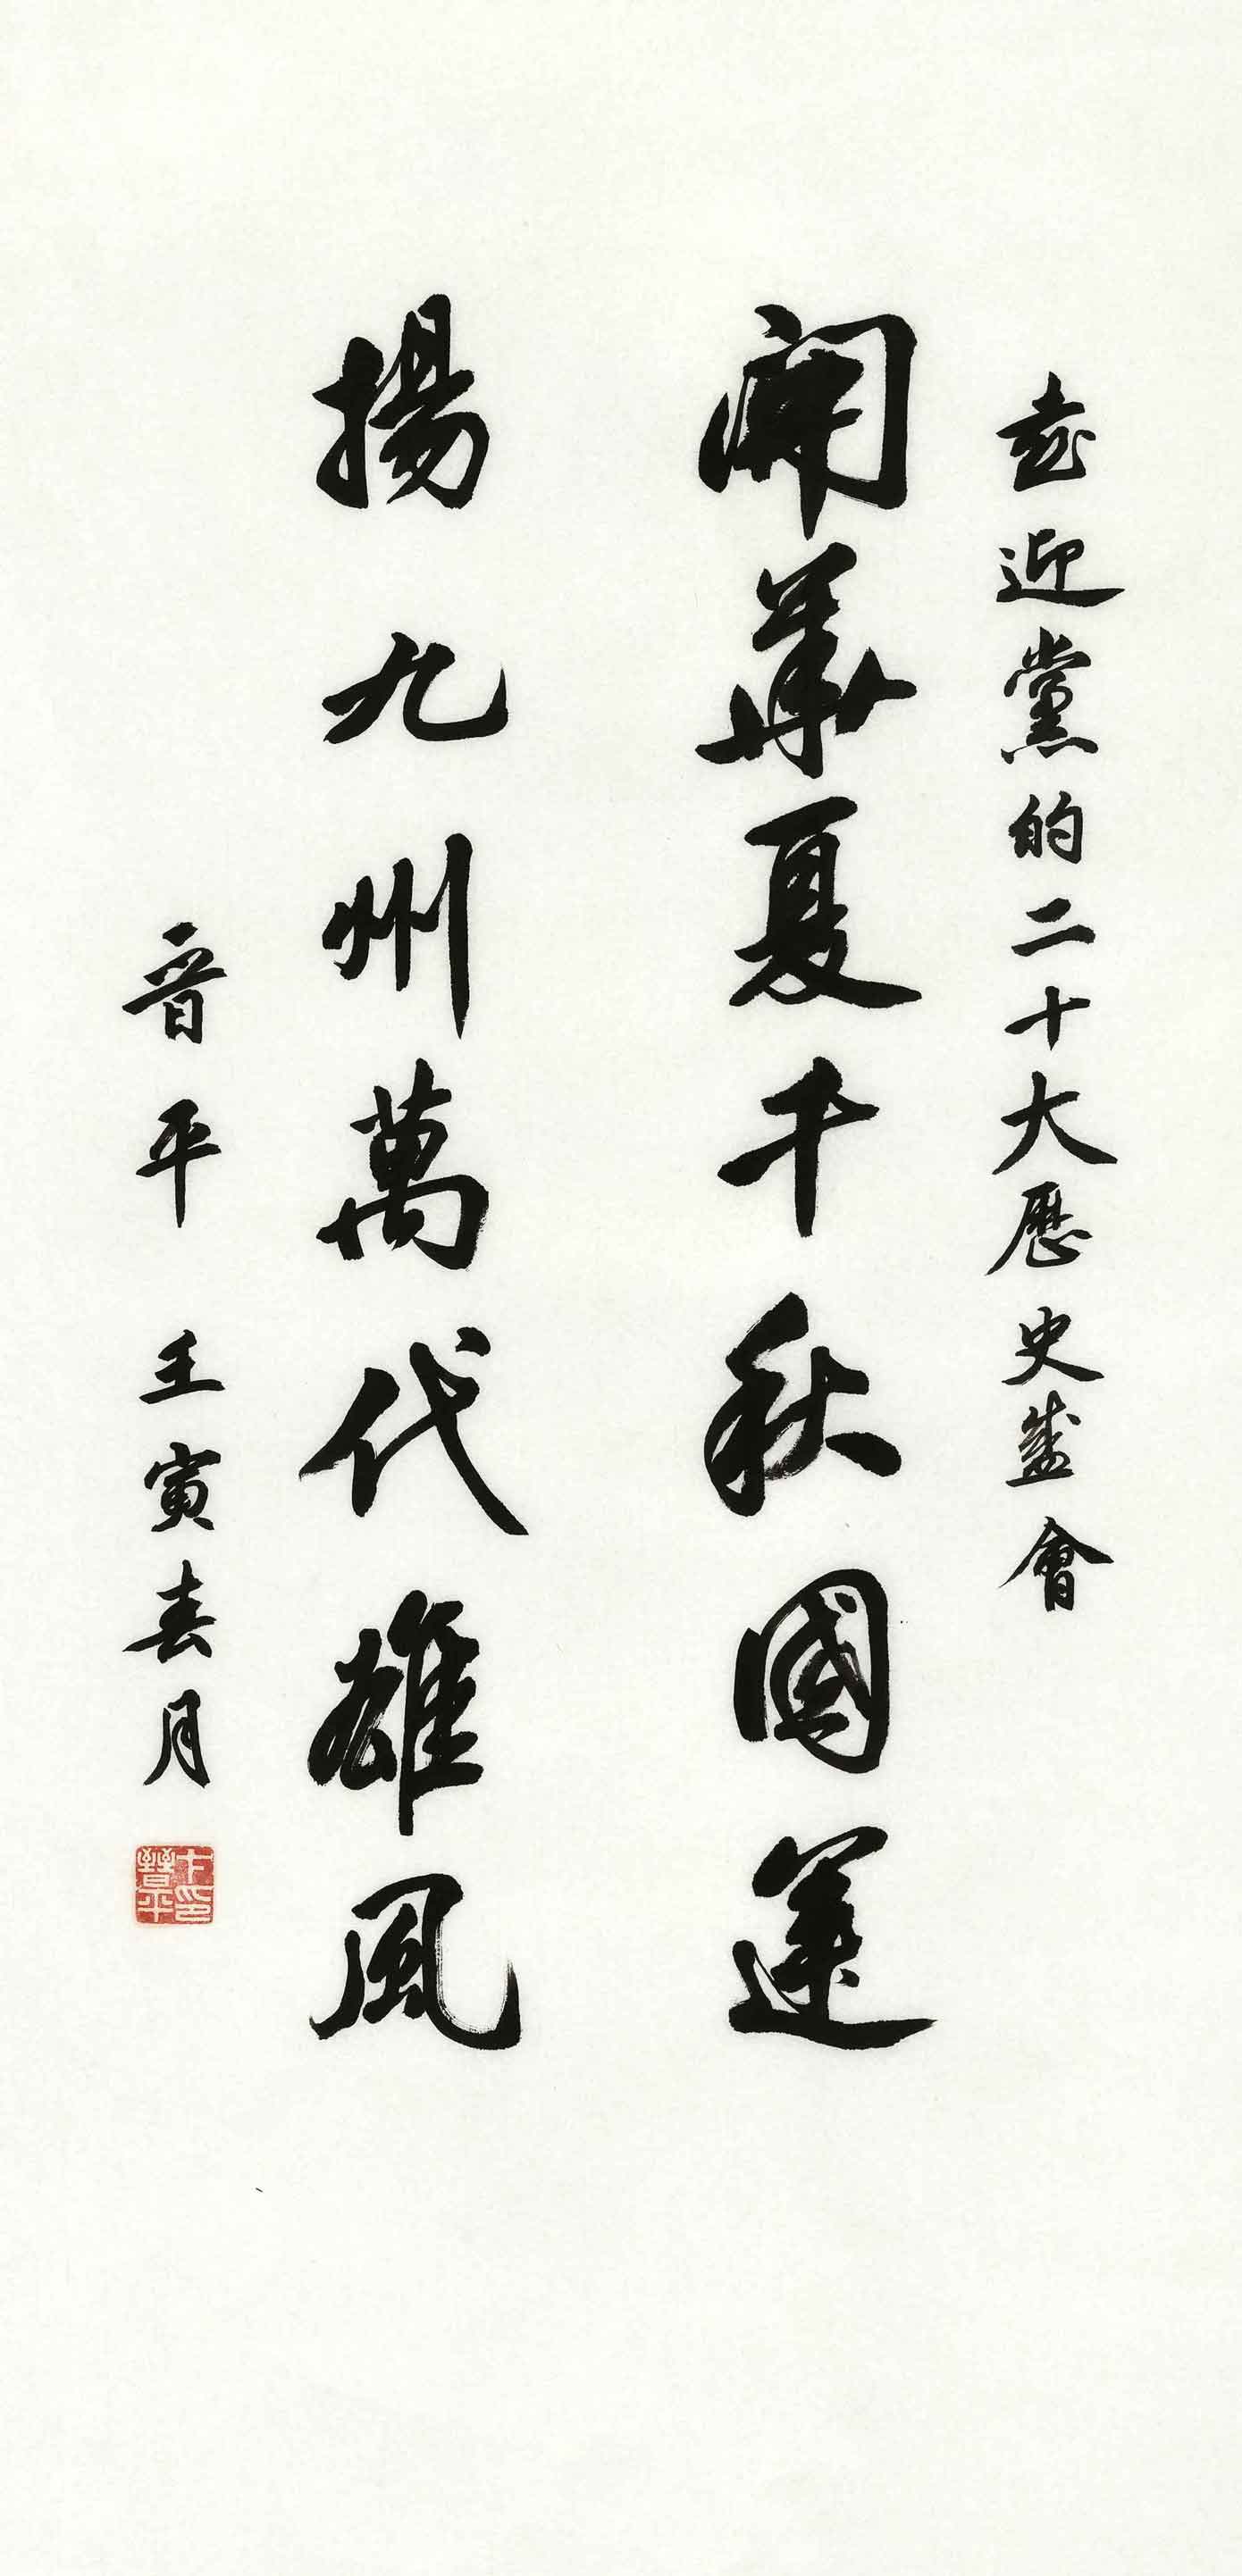 喜迎黨的二十大歷史盛會
開華夏千秋國運
揚九州萬代雄風
晋平 壬寅春月